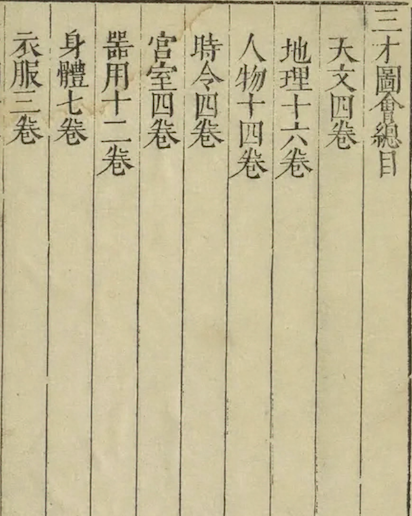 三才圖會總目
天文四卷
地理十六卷
人物十四卷
時令四卷
宮室四卷
器用十二卷
身體七卷
衣服三卷